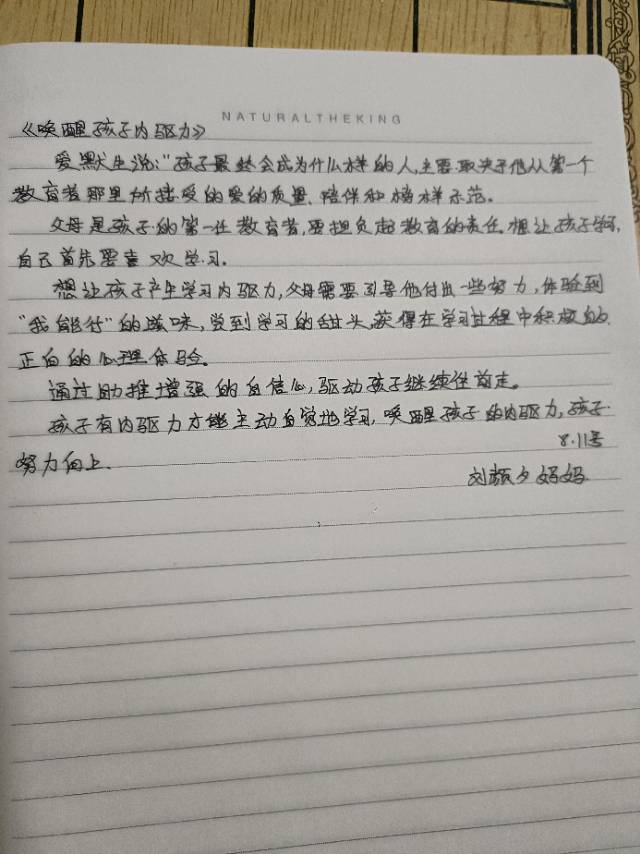 NATURALTHEKING
《唤醒孩子内驱力》
爱默生说:"孩子最终会成为什么样的人,主要取决于他从第一个
教育者那里所接受的爱的质量、陪伴和榜样示范。
父母是孩子的第一任教育者,要担负起教育的责任。想让孩子学习,
自己首先要喜欢学习。
想让孩子产生学习内驱力,父母需要引导他付出一些努力,体验到
"我能行"的滋味,尝到学习的甜头,获得在学习过程中积极的、
正向的心理体验。
通过助推增强的自信心,驱动孩子继续往前走。
孩子有内驱力才能主动自觉地学习,唤醒孩子的内驱力,孩子
努力向上.
8.11号
刘颜夕妈妈